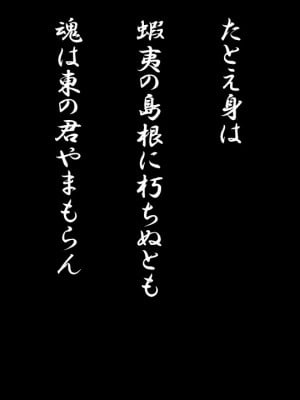 たとえ身は
蝦夷の島根に朽ちぬとも
魂は東の君やまもらん